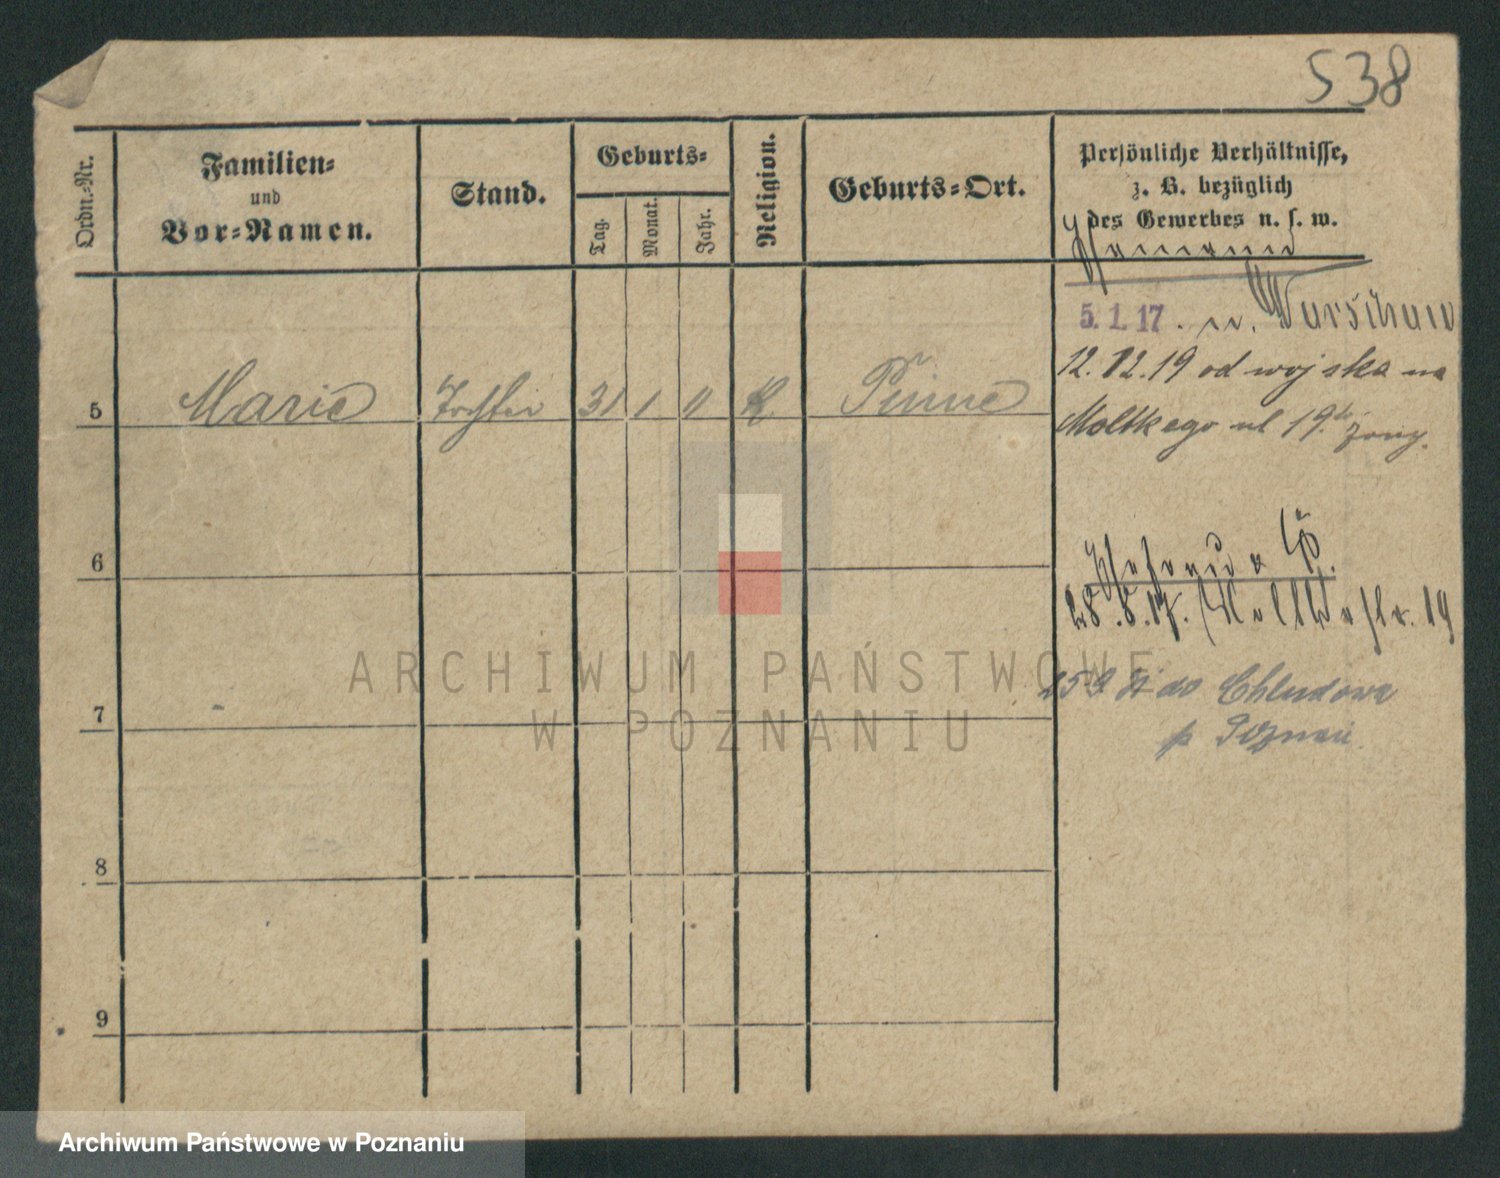 538
Ordn.-Nr.
Familien-
und
Vor-Namen.
Stand.
Geburts-
Tag.
Monat.
Jahr.
Religion.
Geburts-Ort.
Persönliche Verhältnisse,
z. B. bezüglich
des Gewerbes u. s. w.
5.1.17. n. Warschau
5 Marie Tochter 31 1 11 K. Pinne
12.12.19 od wojska na
Moltkego ul 19. żony.
6
28.8.17. Moltkestr. 19
7
do Chludowa
p Poznań
8
9
ARCHIWUM PAŃSTWOWE
W POZNANIU
Archiwum Państwowe w Poznaniu